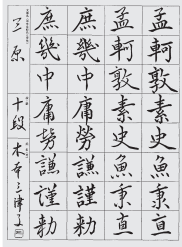 孟軻敦素史魚秉直
孟軻敦素史魚秉直
庶幾中庸勞謙謹勅
庶幾中庸勞謙謹勅
三原 十段 木本三津子